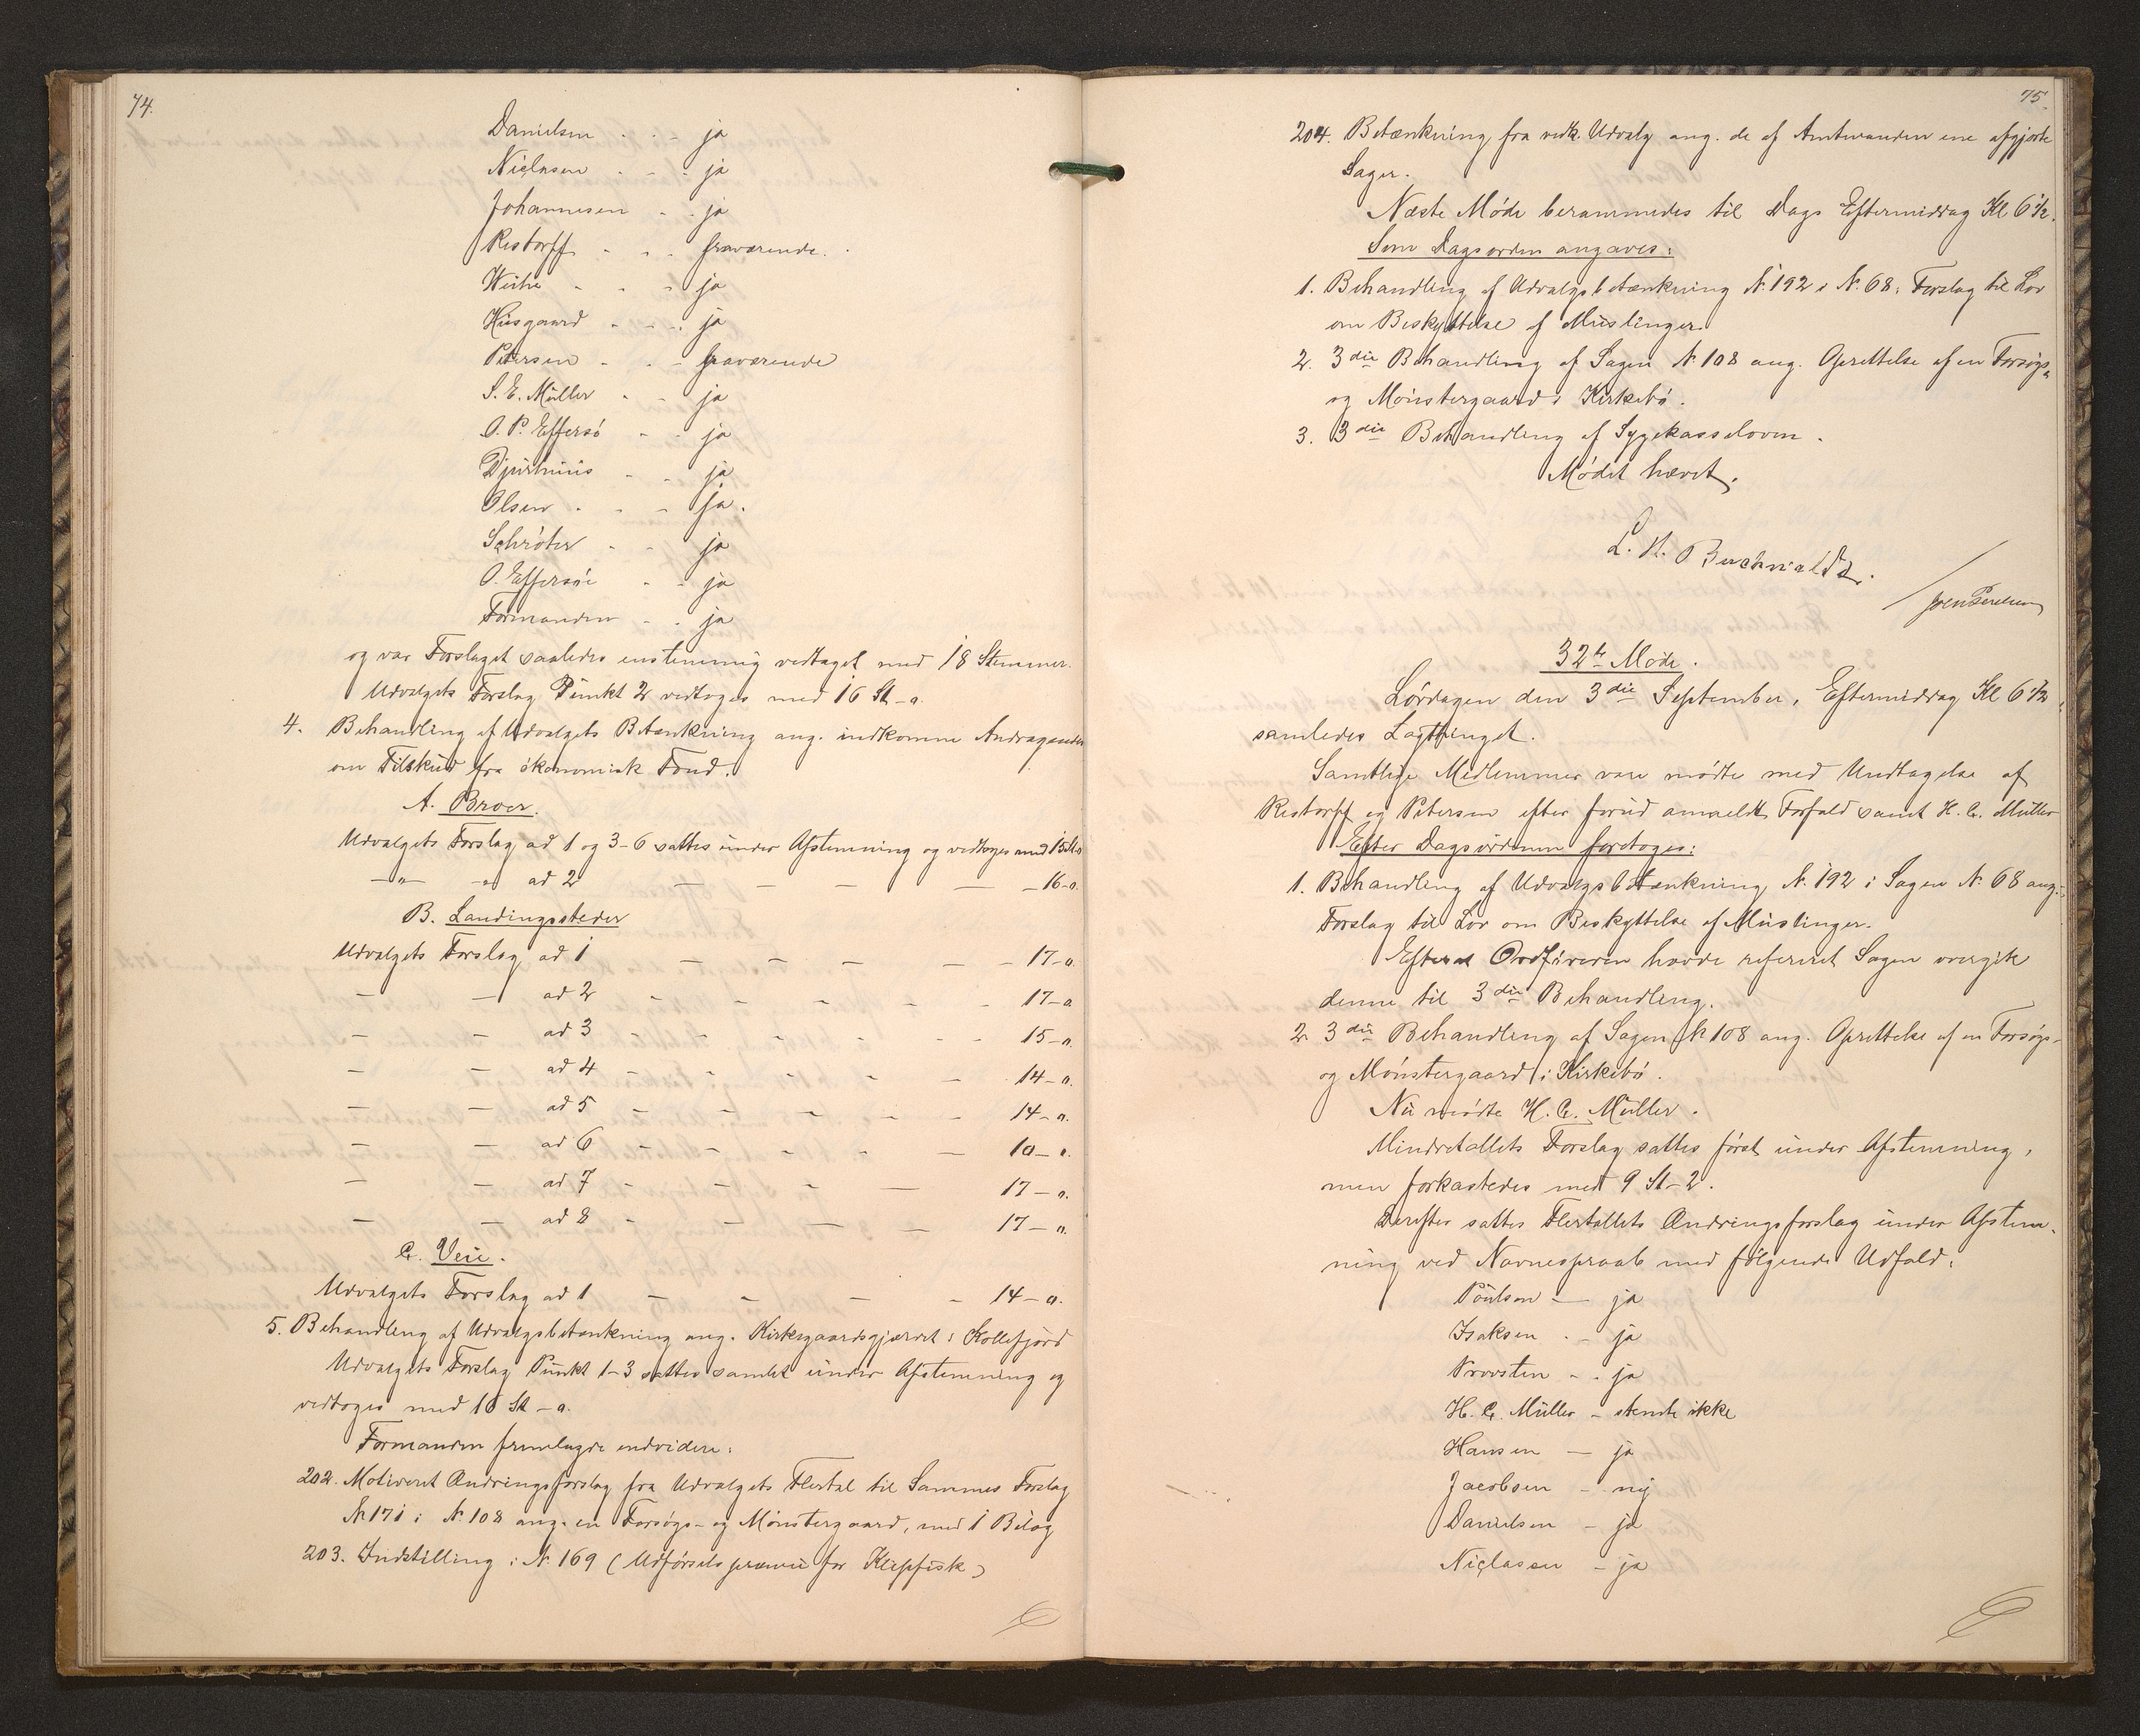 74.
Danielsen - - - ja
Niclasen - - - ja
Johannesen - - ja
Restorff - - - fraværende.
Weihe - - - ja
Husgaard - - - ja
Petersen - - - fraværende
S. E. Müller - - ja
O. P. Effersö - - ja
Djurhuus - - ja
Olsen - - - ja.
Schröter - - ja
O. Effersöe - - ja
Formanden - - ja
og var Forslaget saaledes enstemmig vedtaget med 18 Stemmer.
Udvalgets Forslag Punkt 2 vedtoges med 16 St - 0.
4. Behandling af Udvalgets Betænkning ang. indkomne Andragender
om Tilskud fra økonomisk Fond.
A. Broer.
Udvalgets Forslag ad 1 og 3-6 sattes under Afstemning og vedtoges med 15 St-0
-"- -"- ad 2 - - - - - 16-0.
B. Landingssteder
Udvalgets Forslag ad 1 - - - - - 17-0.
- - ad 2 - - - - - 17-0
- - ad 3 - - - - - 15-0.
- - ad 4 - - - - - 14-0.
- - ad 5 - - - - - 14-0.
- - ad 6 - - - - - 10-0.
- - ad 7 - - - - 17-0.
- - ad 8 - - - - 17-0.
C. Veie.
Udvalgets Forslag ad 1 - - - - 14-0.
5. Behandling af Udvalgsbetænkning ang. Kirkegaardsgjærdet i Kollefjord
Udvalgets Forslag Punkt 1-3 sattes samlet under Afstemning og
vedtoges med 16 St - 0.
Formanden fremlagde endvidere:
202. Motiveret Ændringsforslag fra Udvalgets Flertal til Sammes Forslag
N. 171 i N. 108 ang. en Forsøgs- og Mønstergaard, med 1 Bilag
203. Indstilling i N. 169 (Udførselspræmie for Klipfisk)
75.
204. Betænkning fra vedk. Udvalg ang. de af Amtmanden ene afgjorte
Sager.
Næste Møde berammedes til Dags Eftermiddag Kl 6 1/2.
Som Dagsorden angaves:
1. Behandling af Udvalgsbetænkning N. 192 i N. 68: Forslag til Lov
om Beskyttelse af Muslinger.
2. 3die Behandling af Sagen N. 108 ang. Oprettelse af en Forsøgs-
og Mønstergaard i Kirkebø.
3. 3die Behandling af Sygekasseloven.
Mødet hævet.
32te Møde.
Lørdagen den 3die September, Eftermiddag Kl 6 1/2
samledes Lagthinget.
Samtlige Medlemmer vare mødte med Undtagelse af
Restorff og Petersen efter forud anmeldt Forfald samt H. C. Müller
Efter Dagsordenen foretoges:
1. Behandling af Udvalgsbetænkning N. 192 i Sagen N. 68 ang.:
Forslag til Lov om Beskyttelse af Muslinger.
Efterat Ordføreren havde refereret Sagen overgik
denne til 3die Behandling.
2. 3die Behandling af Sagen N. 108 ang. Oprettelse af en Forsøgs-
og Mønstergaard i Kirkebø.
Nu mødte H. C. Müller.
Mindretallets Forslag sattes først under Afstemning,
men forkastedes med 9 St - 2.
Derefter sattes Flertallets Ændringsforslag under Afstem-
ning ved Navneopraab med følgende Udfald:
Poulsen - ja
Isaksen - - ja
Provsten - - ja
H. C. Müller - stemte ikke
Hansen - ja
Jacobsen - nej
Danielsen - ja
Niclasen - ja